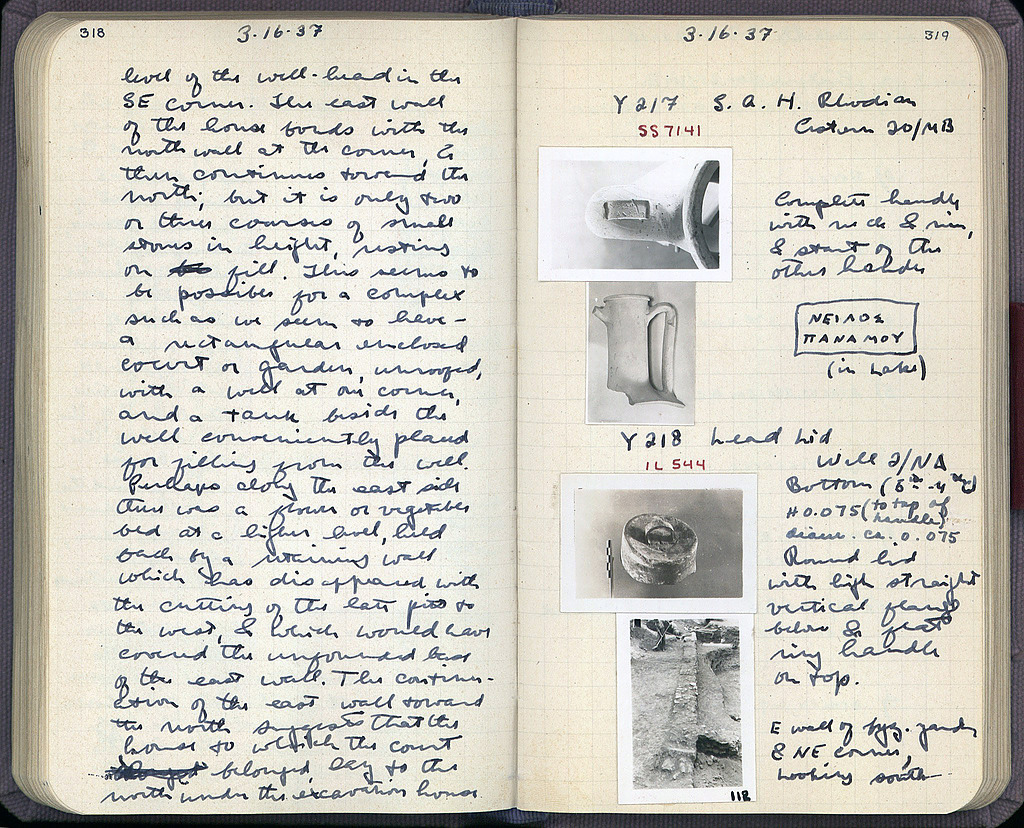 318
3-16-37
level of the well-head in the
SE corner. The east wall
of the house bonds with the
north wall at the corner, &
then continues toward the
north; but it is only two
or three courses of small
stones in height, resting
on fill. This seems to
be possible for a complex
such as we seem to have -
a rectangular enclosed
court or garden, unroofed,
with a well at one corner,
and a tank beside the
well conveniently placed
for filling from the well.
Perhaps along the east side
there was a flower or vegetable
bed at a higher level, held
back by a retaining wall
which has disappeared with
the cutting of the late pits to
the west, & which would have
covered the unfounded base
of the east wall. The continu-
ation of the east wall toward
the north suggests that the
house to which the court
belonged lay to the
north under the excavation house.
3-16-37
319
Y 217 S.A.H. Rhodian
SS 7141
Cistern 20/MB
Complete handle
with neck & rim,
& start of the
other handle
ΝΕΙΛΟΣ
ΠΑΝΑΜΟΥ
(in Lake)
Y 218 Lead Lid
IL 544
Well 2/NA
Bottom
H 0.075 (to top of
handle)
diam. ca. 0.075
Round lid
with high straight
vertical flange
below & flat
ring handle
on top.
E wall of byz. garden
& NE corner,
looking south
112